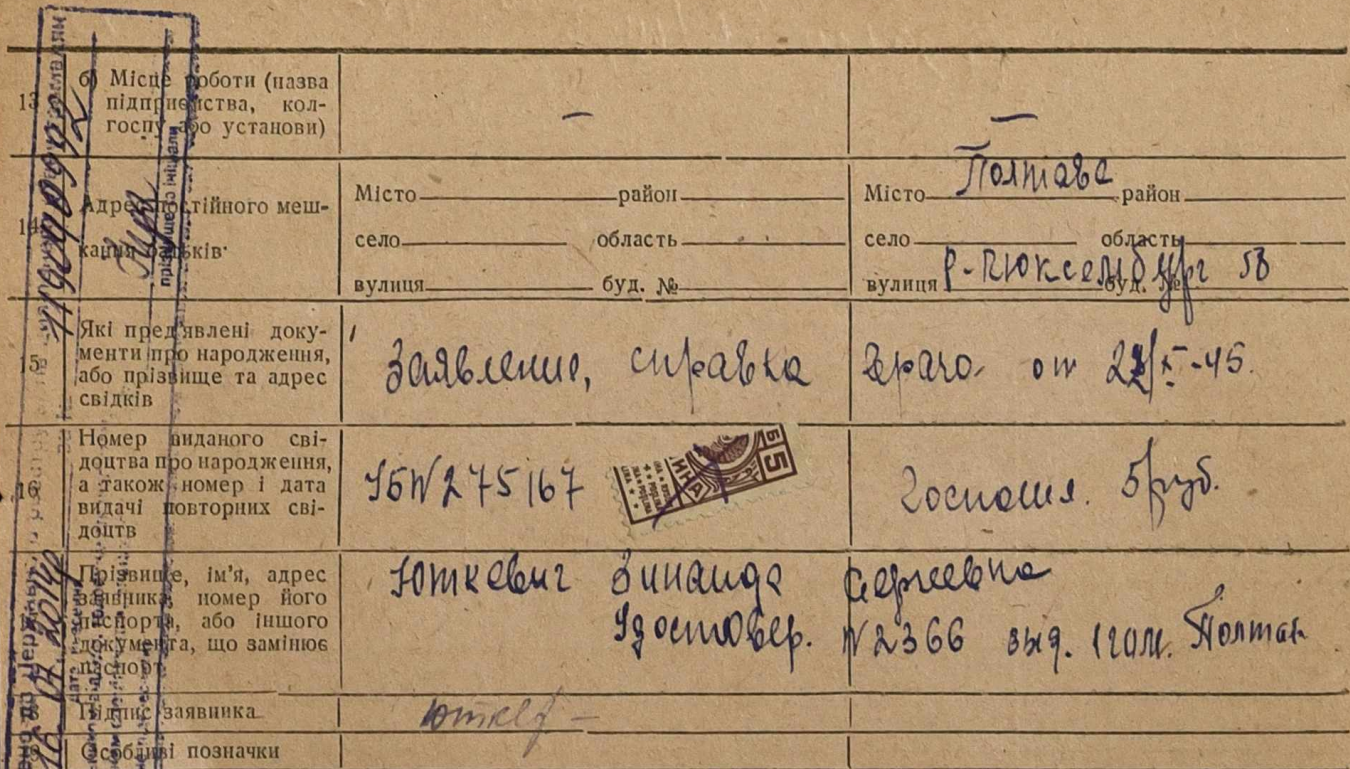 13 б) Місце роботи (назва
підприємства, кол-
госпу або установи)
— —
14 Адреса постійного меш-
кання батьків
Місто район
село область
вулиця буд. №
Місто Полтава район
село область
вулиця Р-Люксембург буд. №
15 Які пред'явлені доку-
менти про народження,
або прізвище та адрес
свідків
Заявление, справка врача от
-45.
16 Номер виданого сві-
доцтва про народження,
а також номер і дата
видачі повторних сві-
доцтв
УБ№275167
5
Госпошл. 5 руб.
Прізвище, ім'я, адрес
заявника, номер його
паспорта, або іншого
документа, що замінює
паспорт
Юткевич Зинаида Сергеевна
Удостовер. №2366 выд.
Підпис заявника
Юткев
Особливі позначки
прізвище та ініціали